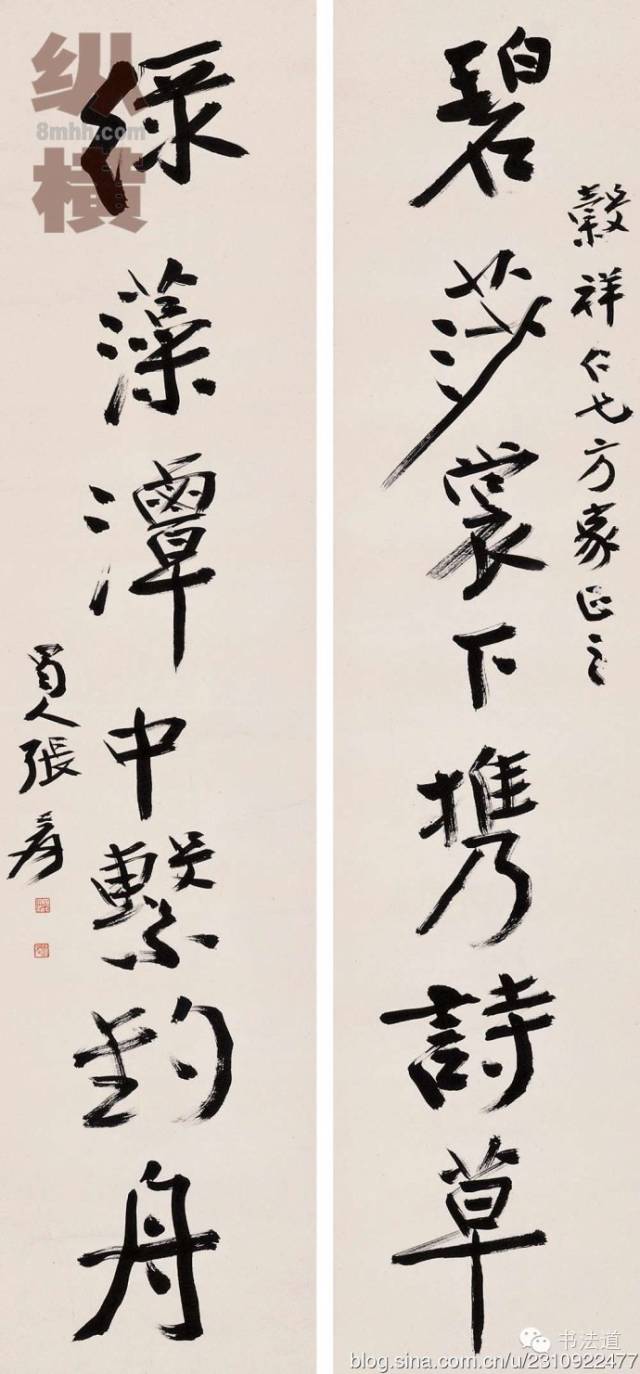 穀祥仁兄方家正之
碧莎裳下携詩草
綠藻潭中繫釣舟
蜀人張爰
纵
8mhh.com
横
书法道
blog.sina.com.cn/u/2310922477